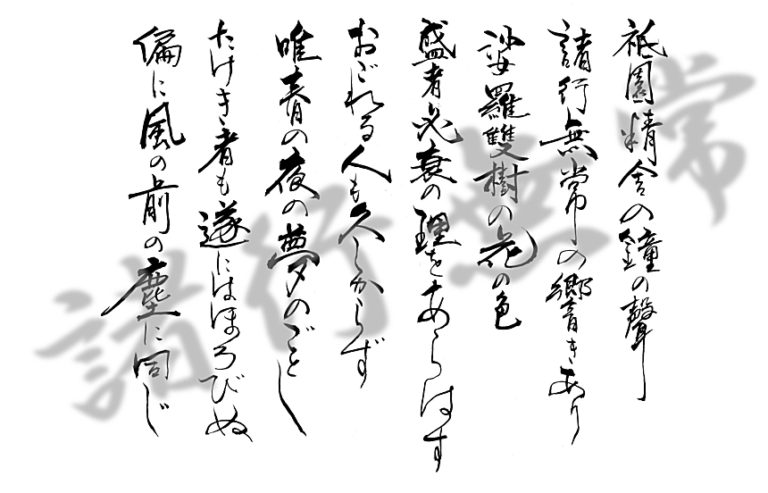 祇園精舎の鐘の聲
諸行無常の響きあり
沙羅雙樹の花の色
盛者必衰の理をあらはす
おごれる人も久しからず
唯春の夜の夢のごとし
たけき者も遂にはほろびぬ
偏に風の前の塵に同じ
諸行無常